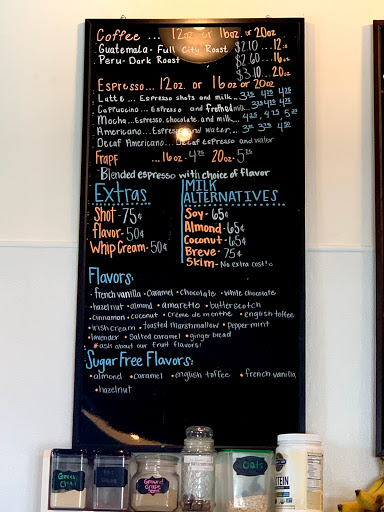 Coffee ... 12oz. or 16oz. or 20oz
Guatemala - Full City Roast $2.10 ...12oz
Peru - Dark Roast $2.60 ...16oz
$3.10 ...20oz
Espresso... 12oz. or 16oz or 20oz
Latte... Espresso shots and milk...
Cappuccino... Espresso and frothed milk
Mocha... Espresso, chocolate and milk...
Americano... Espresso and water...
Decaf Americano... Decaf espresso and water
Frapp ...16oz - 4.75 20oz - 5.25
Blended espresso with choice of flavor
Extras
Shot - 75¢
Flavor - 50¢
Whip Cream - 50¢
MILK
ALTERNATIVES
Soy - 65¢
Almond - 65¢
Coconut - 65¢
Breve - 75¢
Skim - No extra cost
Flavors:
• french vanilla • caramel • chocolate • white chocolate
• hazelnut • almond • amaretto • butterscotch
• cinnamon • coconut • crème de menthe • english toffee
• irish cream • toasted marshmallow • peppermint
• lavender • salted caramel • ginger bread
*ask about our fruit flavors!
Sugar Free Flavors:
• almond • caramel • english toffee • french vanilla
• hazelnut
Ground
Grape
Oats